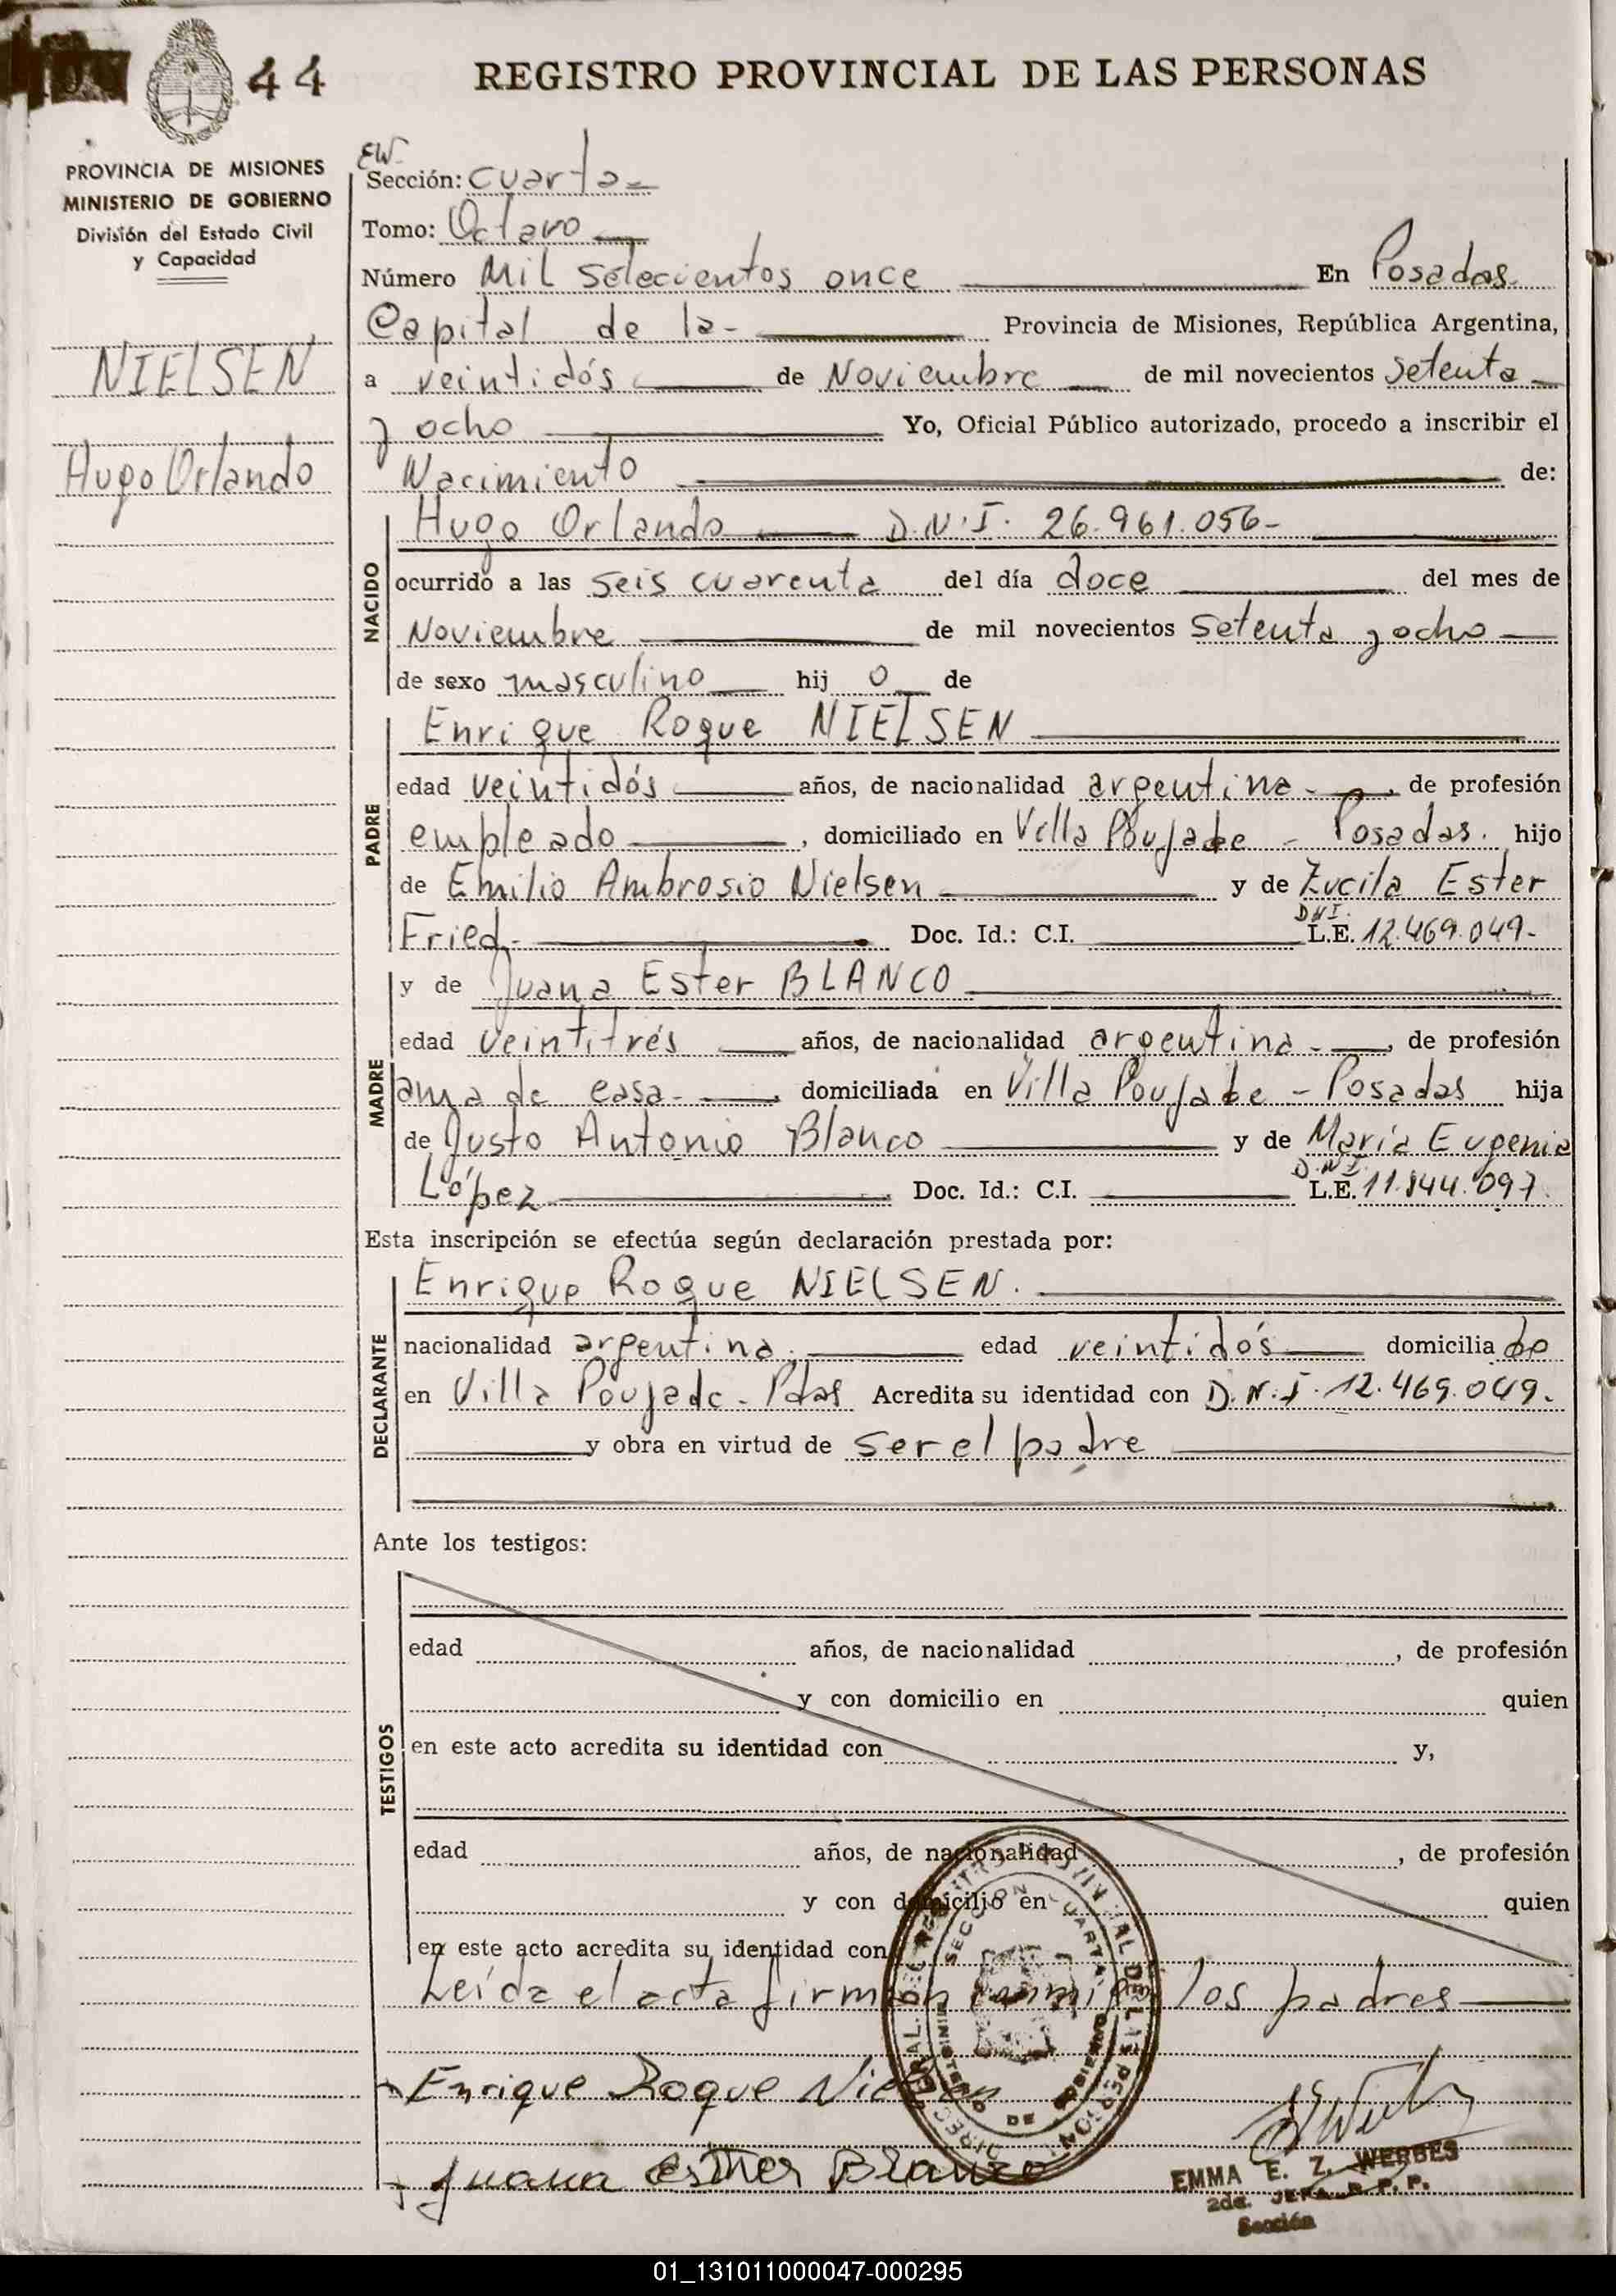 44
REGISTRO PROVINCIAL DE LAS PERSONAS
PROVINCIA DE MISIONES
MINISTERIO DE GOBIERNO
División del Estado Civil
y Capacidad
NIELSEN
Hugo Orlando
EW.
Sección: cuarta
Tomo: Octavo
Número Mil setecientos once En Posadas
Capital de la- Provincia de Misiones, República Argentina,
a veintidós de Noviembre de mil novecientos setenta
y ocho Yo, Oficial Público autorizado, procedo a inscribir el
Nacimiento de:
NACIDO
Hugo Orlando D.N.I. 26.961.056-
ocurrido a las seis cuarenta del día doce del mes de
Noviembre de mil novecientos setenta y ocho
de sexo masculino hij o de
PADRE
Enrique Roque NIELSEN
edad veintidós años, de nacionalidad argentina, de profesión
empleado, domiciliado en Villa Poujade - Posadas. hijo
de Emilio Ambrosio Nielsen y de Zucila Ester
Fried.- Doc. Id.: C.I. DNI. L.E. 12.469.049-
MADRE
y de Juana Ester BLANCO
edad veintitrés años, de nacionalidad argentina, de profesión
ama de casa, domiciliada en Villa Poujade - Posadas hija
de Justo Antonio Blanco y de María Eugenia
López Doc. Id.: C.I. D.N.I. L.E. 11.844.097.
Esta inscripción se efectúa según declaración prestada por:
DECLARANTE
Enrique Roque NIELSEN.
nacionalidad argentina. edad veintidós domicilia do
en Villa Poujade - Pdas Acredita su identidad con D.N.I. 12.469.049.
y obra en virtud de ser el padre
Ante los testigos:
TESTIGOS
edad años, de nacionalidad , de profesión
y con domicilio en quien
en este acto acredita su identidad con y,
edad años, de nacionalidad , de profesión
y con domicilio en quien
en este acto acredita su identidad con
Leída el acta firman conmigo los padres
Enrique Roque Nielsen
Juana Esther Blanco
SECCION CUARTA
MINISTERIO DE GOBIERNO
EMMA E. Z. WERBES
2da. JEFA R. P. P.
Sección
01_131011000047-000295